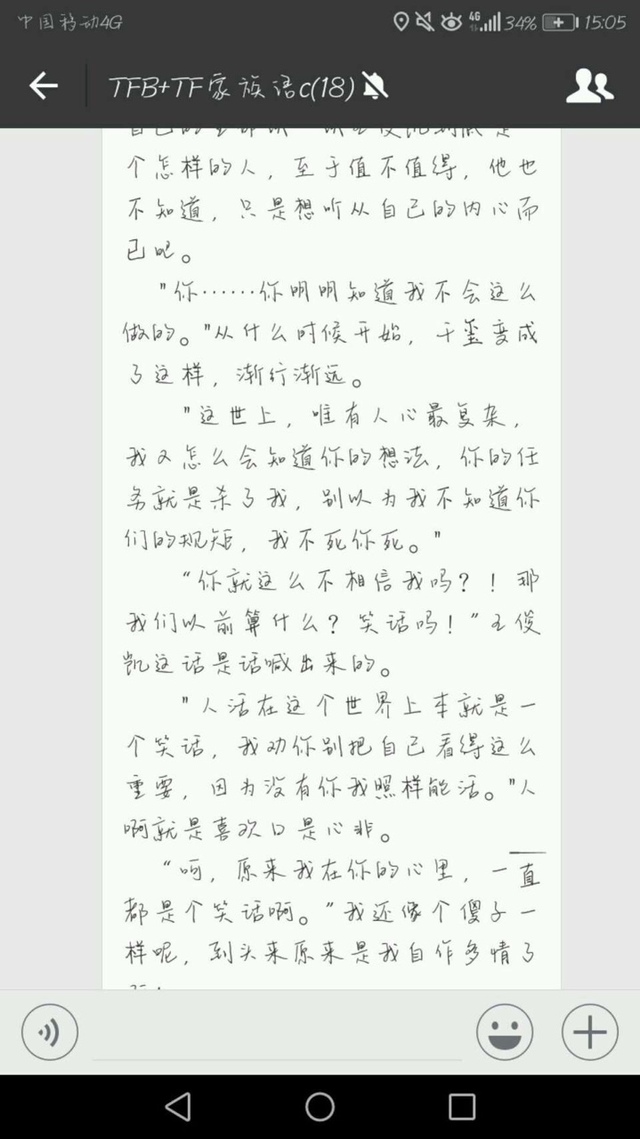 中国移动4G 4G 34% 15:05
TFB+TF家族语c(18)
个怎样的人，至于值不值得，他也
不知道，只是想听从自己的内心而
已吧。
"你……你明明知道我不会这么
做的。"从什么时候开始，千玺变成
了这样，渐行渐远。
"这世上，唯有人心最复杂，
我又怎么会知道你的想法，你的任
务就是杀了我，别以为我不知道你
们的规矩，我不死你死。"
"你就这么不相信我吗？！那
我们以前算什么？笑话吗！"王俊
凯这话是话喊出来的。
"人活在这个世界上本就是一
个笑话，我劝你别把自己看得这么
重要，因为没有你我照样能活。"人
啊就是喜欢口是心非。
"呵，原来我在你的心里，一直
都是个笑话啊。"我还像个傻子一
样呢，到头来原来是我自作多情了